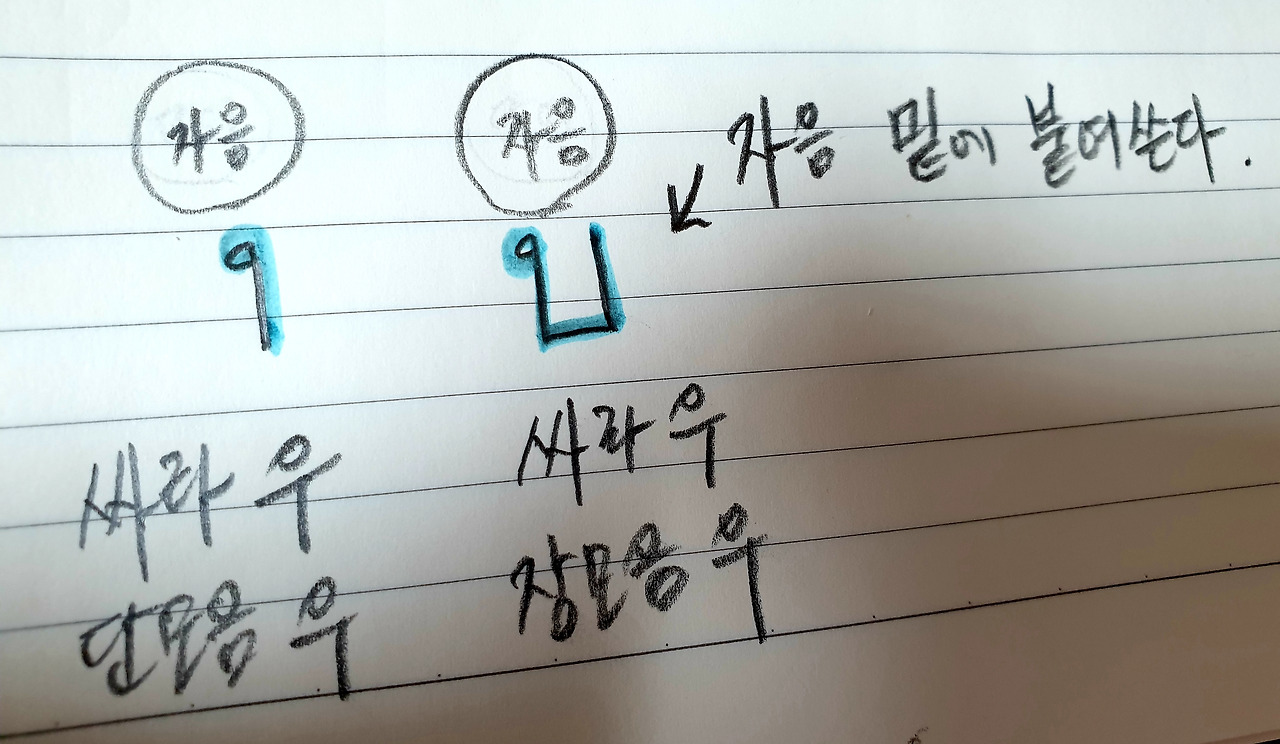 자음 자음 자음 밑에 붙여쓴다.
ุ ู
싸라 우 싸라 우
단모음 우 장모음 우